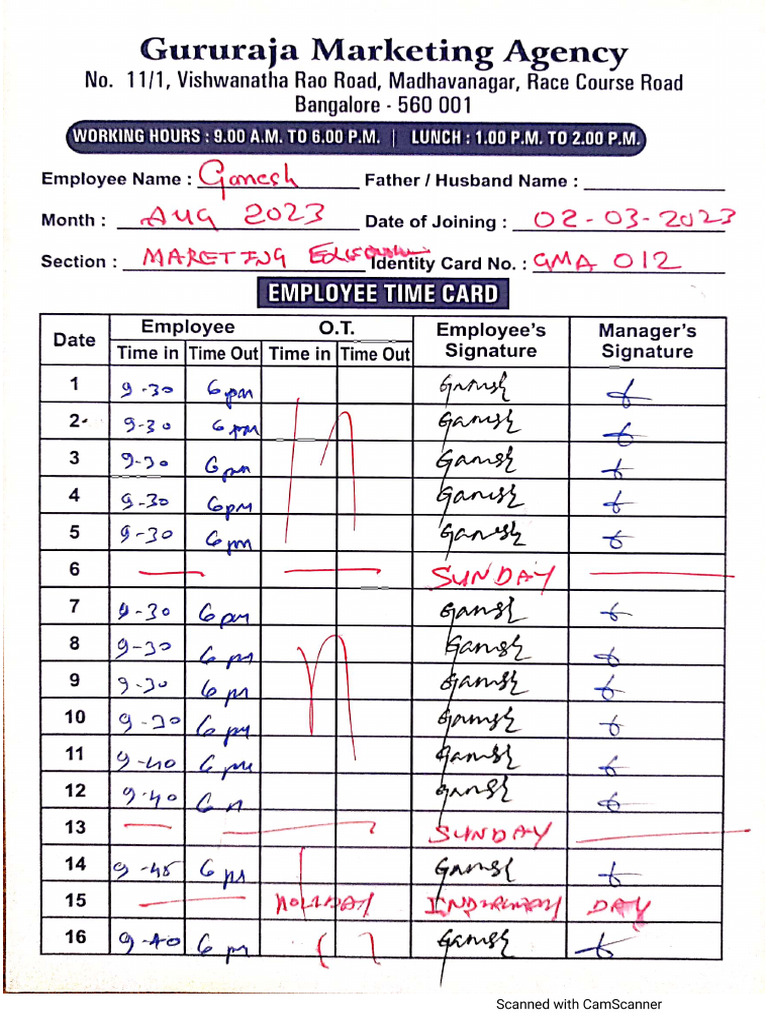 Gururaja Marketing Agency
No. 11/1, Vishwanatha Rao Road, Madhavanagar, Race Course Road
Bangalore - 560 001
WORKING HOURS : 9.00 A.M. TO 6.00 P.M. | LUNCH : 1.00 P.M. TO 2.00 P.M.
Employee Name : Ganesh Father / Husband Name :
Month : AUG 2023 Date of Joining : 02-03-2023
Section : MARETING Identity Card No. : GMA 012
EMPLOYEE TIME CARD
Date Employee O.T. Employee's Signature Manager's Signature
Time in Time Out Time in Time Out
1 9-30 6pm Ganesh
2 9-30 6pm Ganesh
3 9-30 6pm Ganesh
4 9-30 6pm Ganesh
5 9-30 6pm Ganesh
6 SUNDAY
7 9-30 6pm Ganesh
8 9-30 6pm Ganesh
9 9-30 6pm Ganesh
10 9-30 6pm Ganesh
11 9-40 6pm Ganesh
12 9-40 6 Ganesh
13 SUNDAY
14 9-45 6pm Ganesh
15 HOLIDAY DAY
16 9-40 6pm Ganesh
Scanned with CamScanner